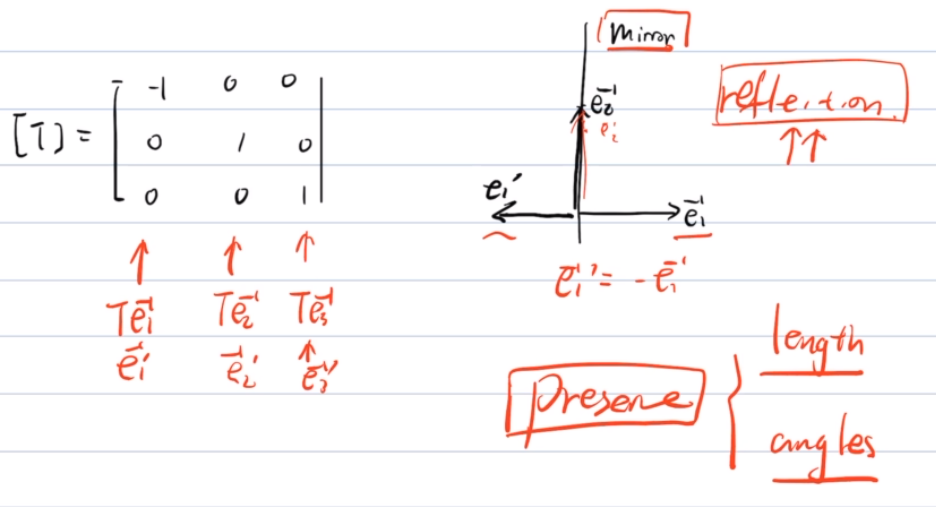 [T] = [ -1 0 0
0 1 0
0 0 1 ]
Te⃗₁ Te⃗₂ Te⃗₃
e⃗₁' e⃗₂' e⃗₃'
mirror
e⃗₂
e₂'
e₁' e⃗₁
e⃗₁' = -e⃗₁
reflection
preserve
length
angles